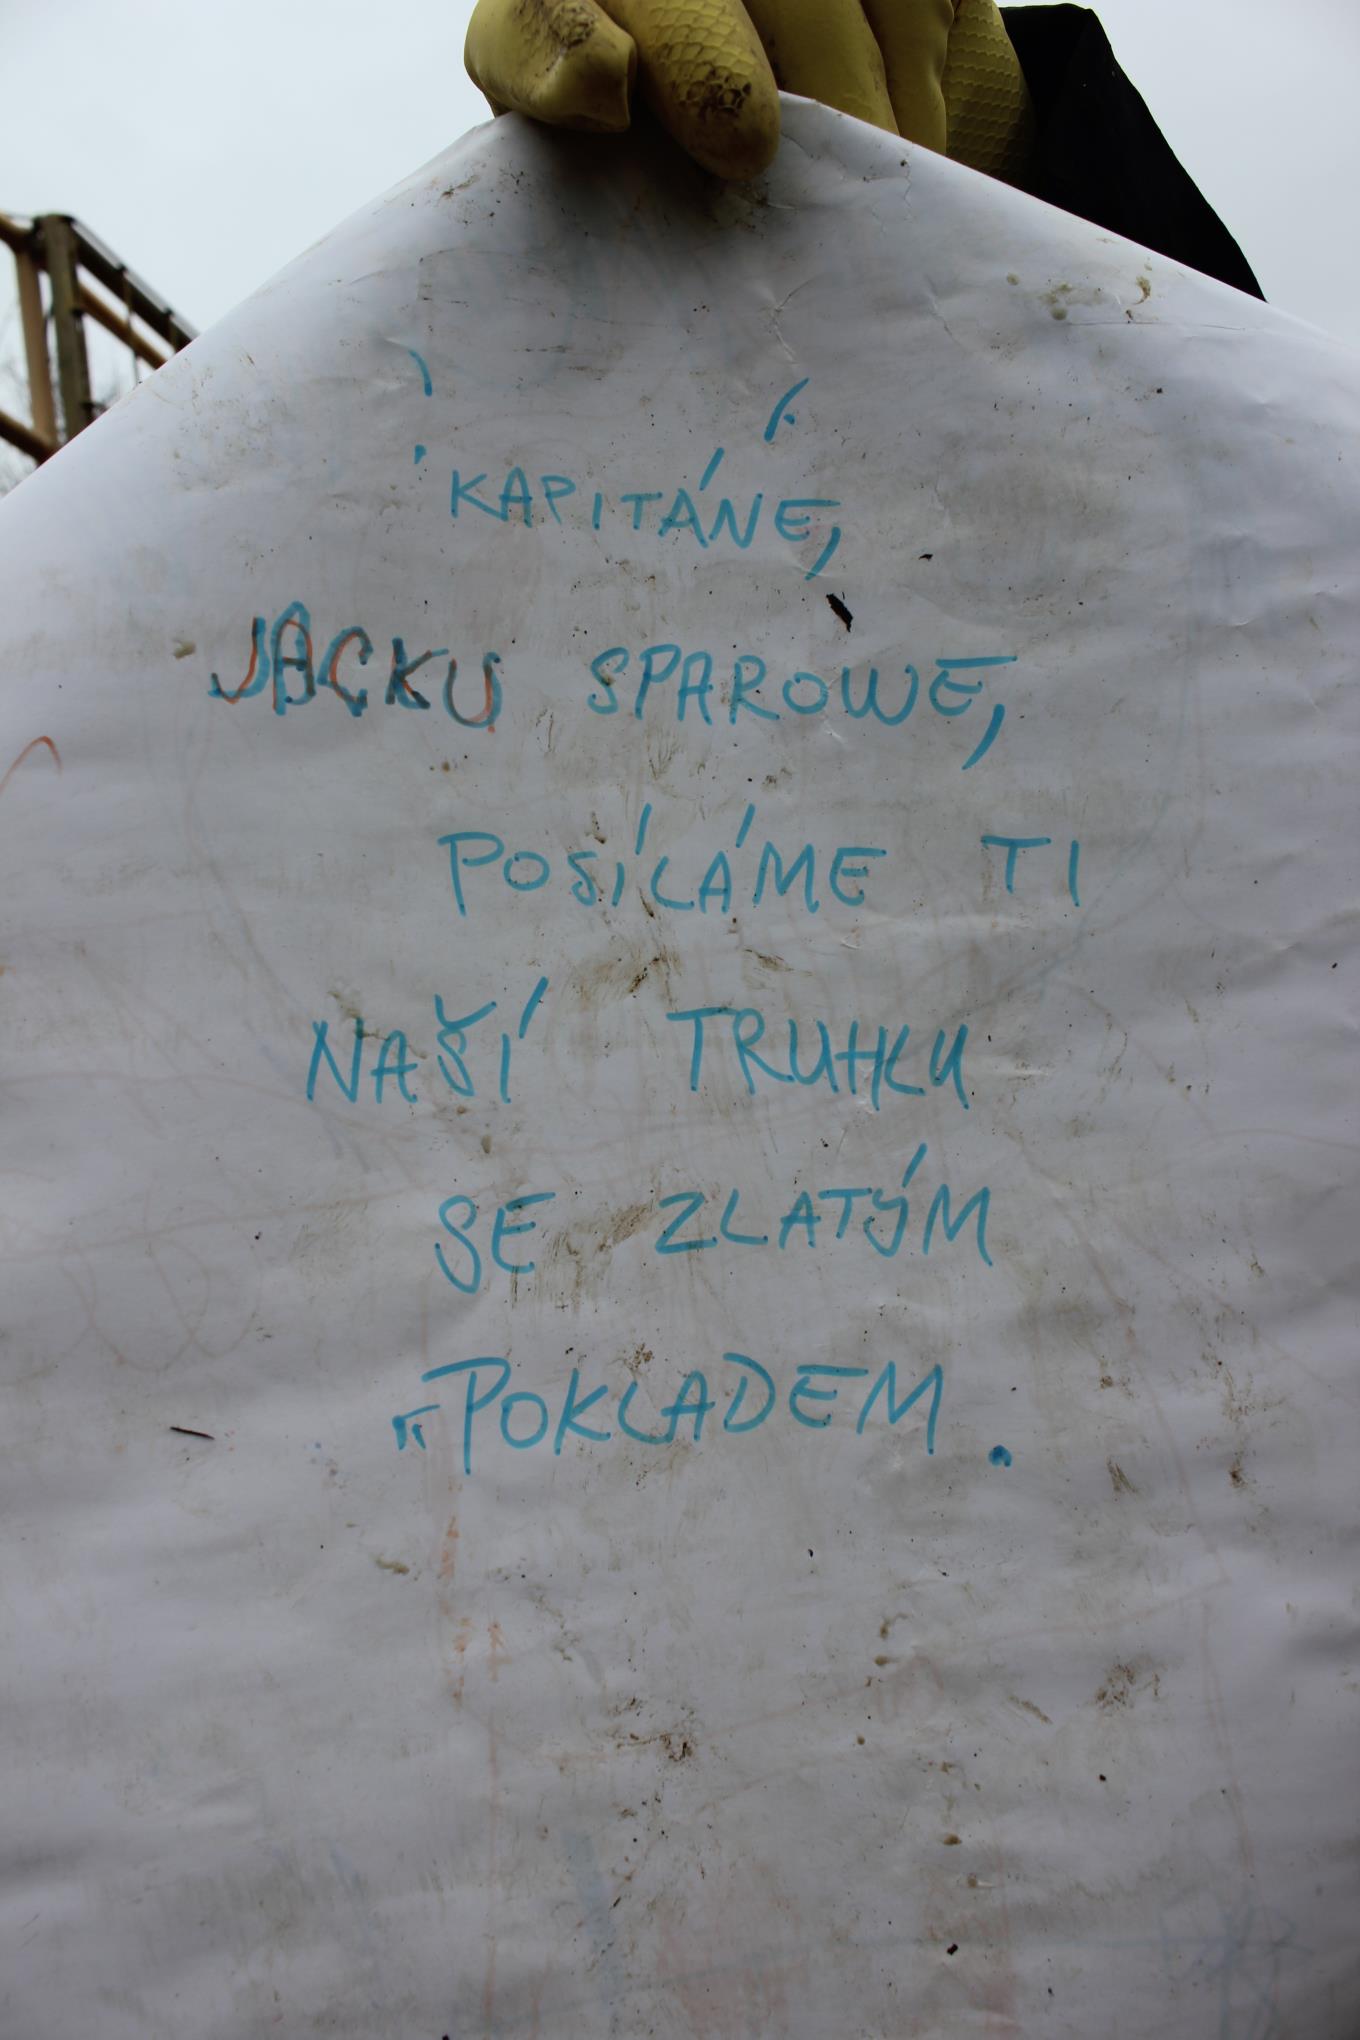 KAPITÁNE,
JACKU SPAROWE,
POSÍLÁME TI
NAŠÍ TRUHLU
SE ZLATÝM
POKLADEM.